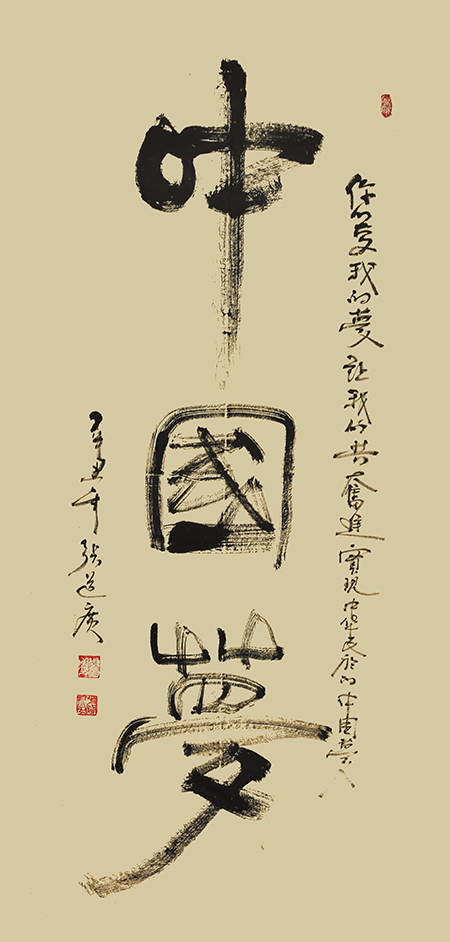 你的夢我的夢让我们共奮進實現中华民族的中國夢
中國夢
辛丑年張道廣